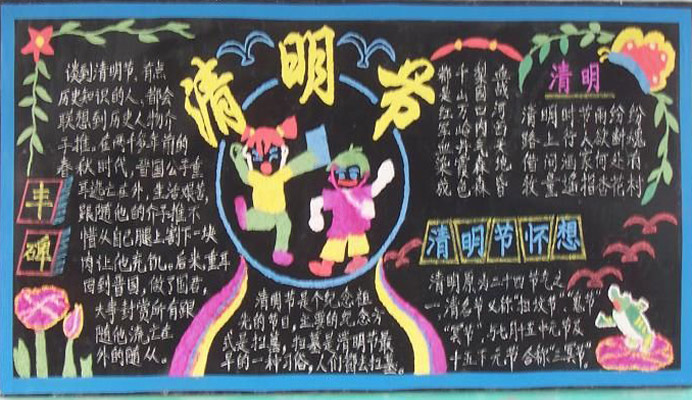 清明节
丰碑
谈到清明节，有点
历史知识的人，都会
联想到历史人物介
子推。在两千多年前的
春秋时代，晋国公子重
耳逃亡在外，生活艰苦，
跟随他的介子推不
惜从自己腿上割下一块
肉让他充饥。后来，重耳
回到晋国，做了国君，
大事封赏所有跟
随他流亡在
外的随从。
清明节是个纪念祖
先的节日，主要的纪念方
式是扫墓，扫墓是清明节最
早的一种习俗，人们都去扫墓。
血战河西
梨园口内
千山万
都是红军血染成
清明
清明时节雨纷纷
路上行人欲断魂
借问酒家何处有
牧童遥指杏花村
清明节怀想
清明原为二十四节气之
一，清名节又称“扫坟节”、“鬼节”
“冥节”，与七月十五中元节及
十五下元节合称“三冥节”。